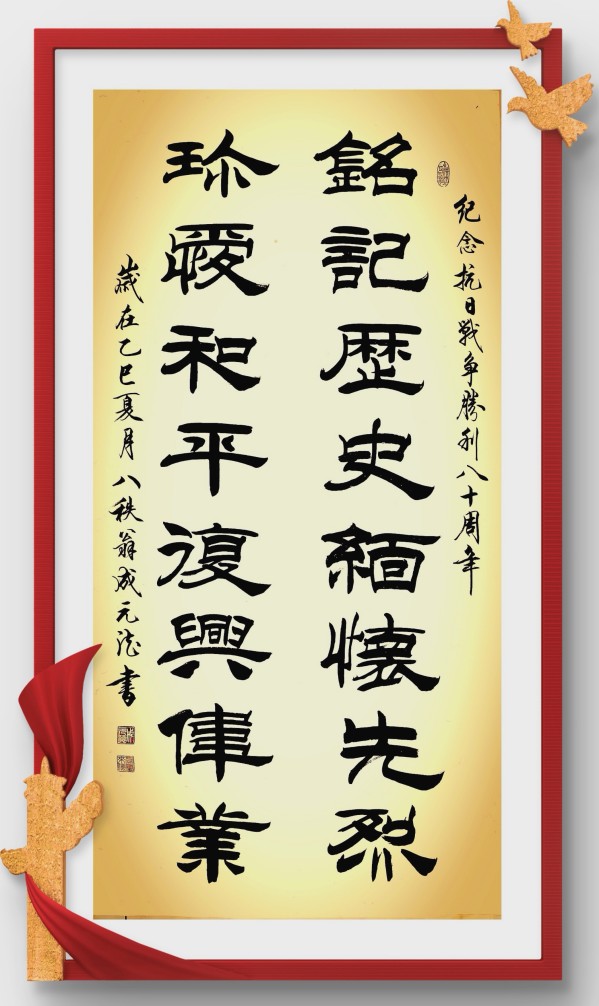 纪念抗日戰争勝利八十周年
銘記歷史緬懷先烈
珎愛和平復興偉業
歲在乙巳夏月八秩翁成元法書